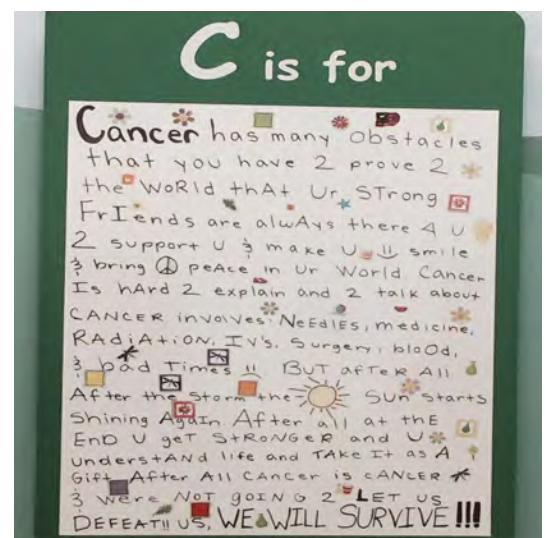 C is for
Cancer has many obstacles
that you have 2 prove 2
the WoRld thAt Ur STrong
FrIends are alwAys there 4 U
2 support U & make U smile
& bring ☮ peAce in Ur World Cancer
Is hArd 2 explain and 2 talk about
CANCER involves: NeEdlEs, medicine,
RAdiAtioN, IV's, Surgery, bloOd,
& bad Times !! BUT afTeR All
After the Storm the Sun Starts
Shining AgaIn. After all at thE
EnD U geT StRoNGeR and U
understANd life and TAke It as A
Gift. After All CAncer is cANCER
& were NOT goING 2 LET US
DEFEAT!! US, WE WILL SURVIVE!!!